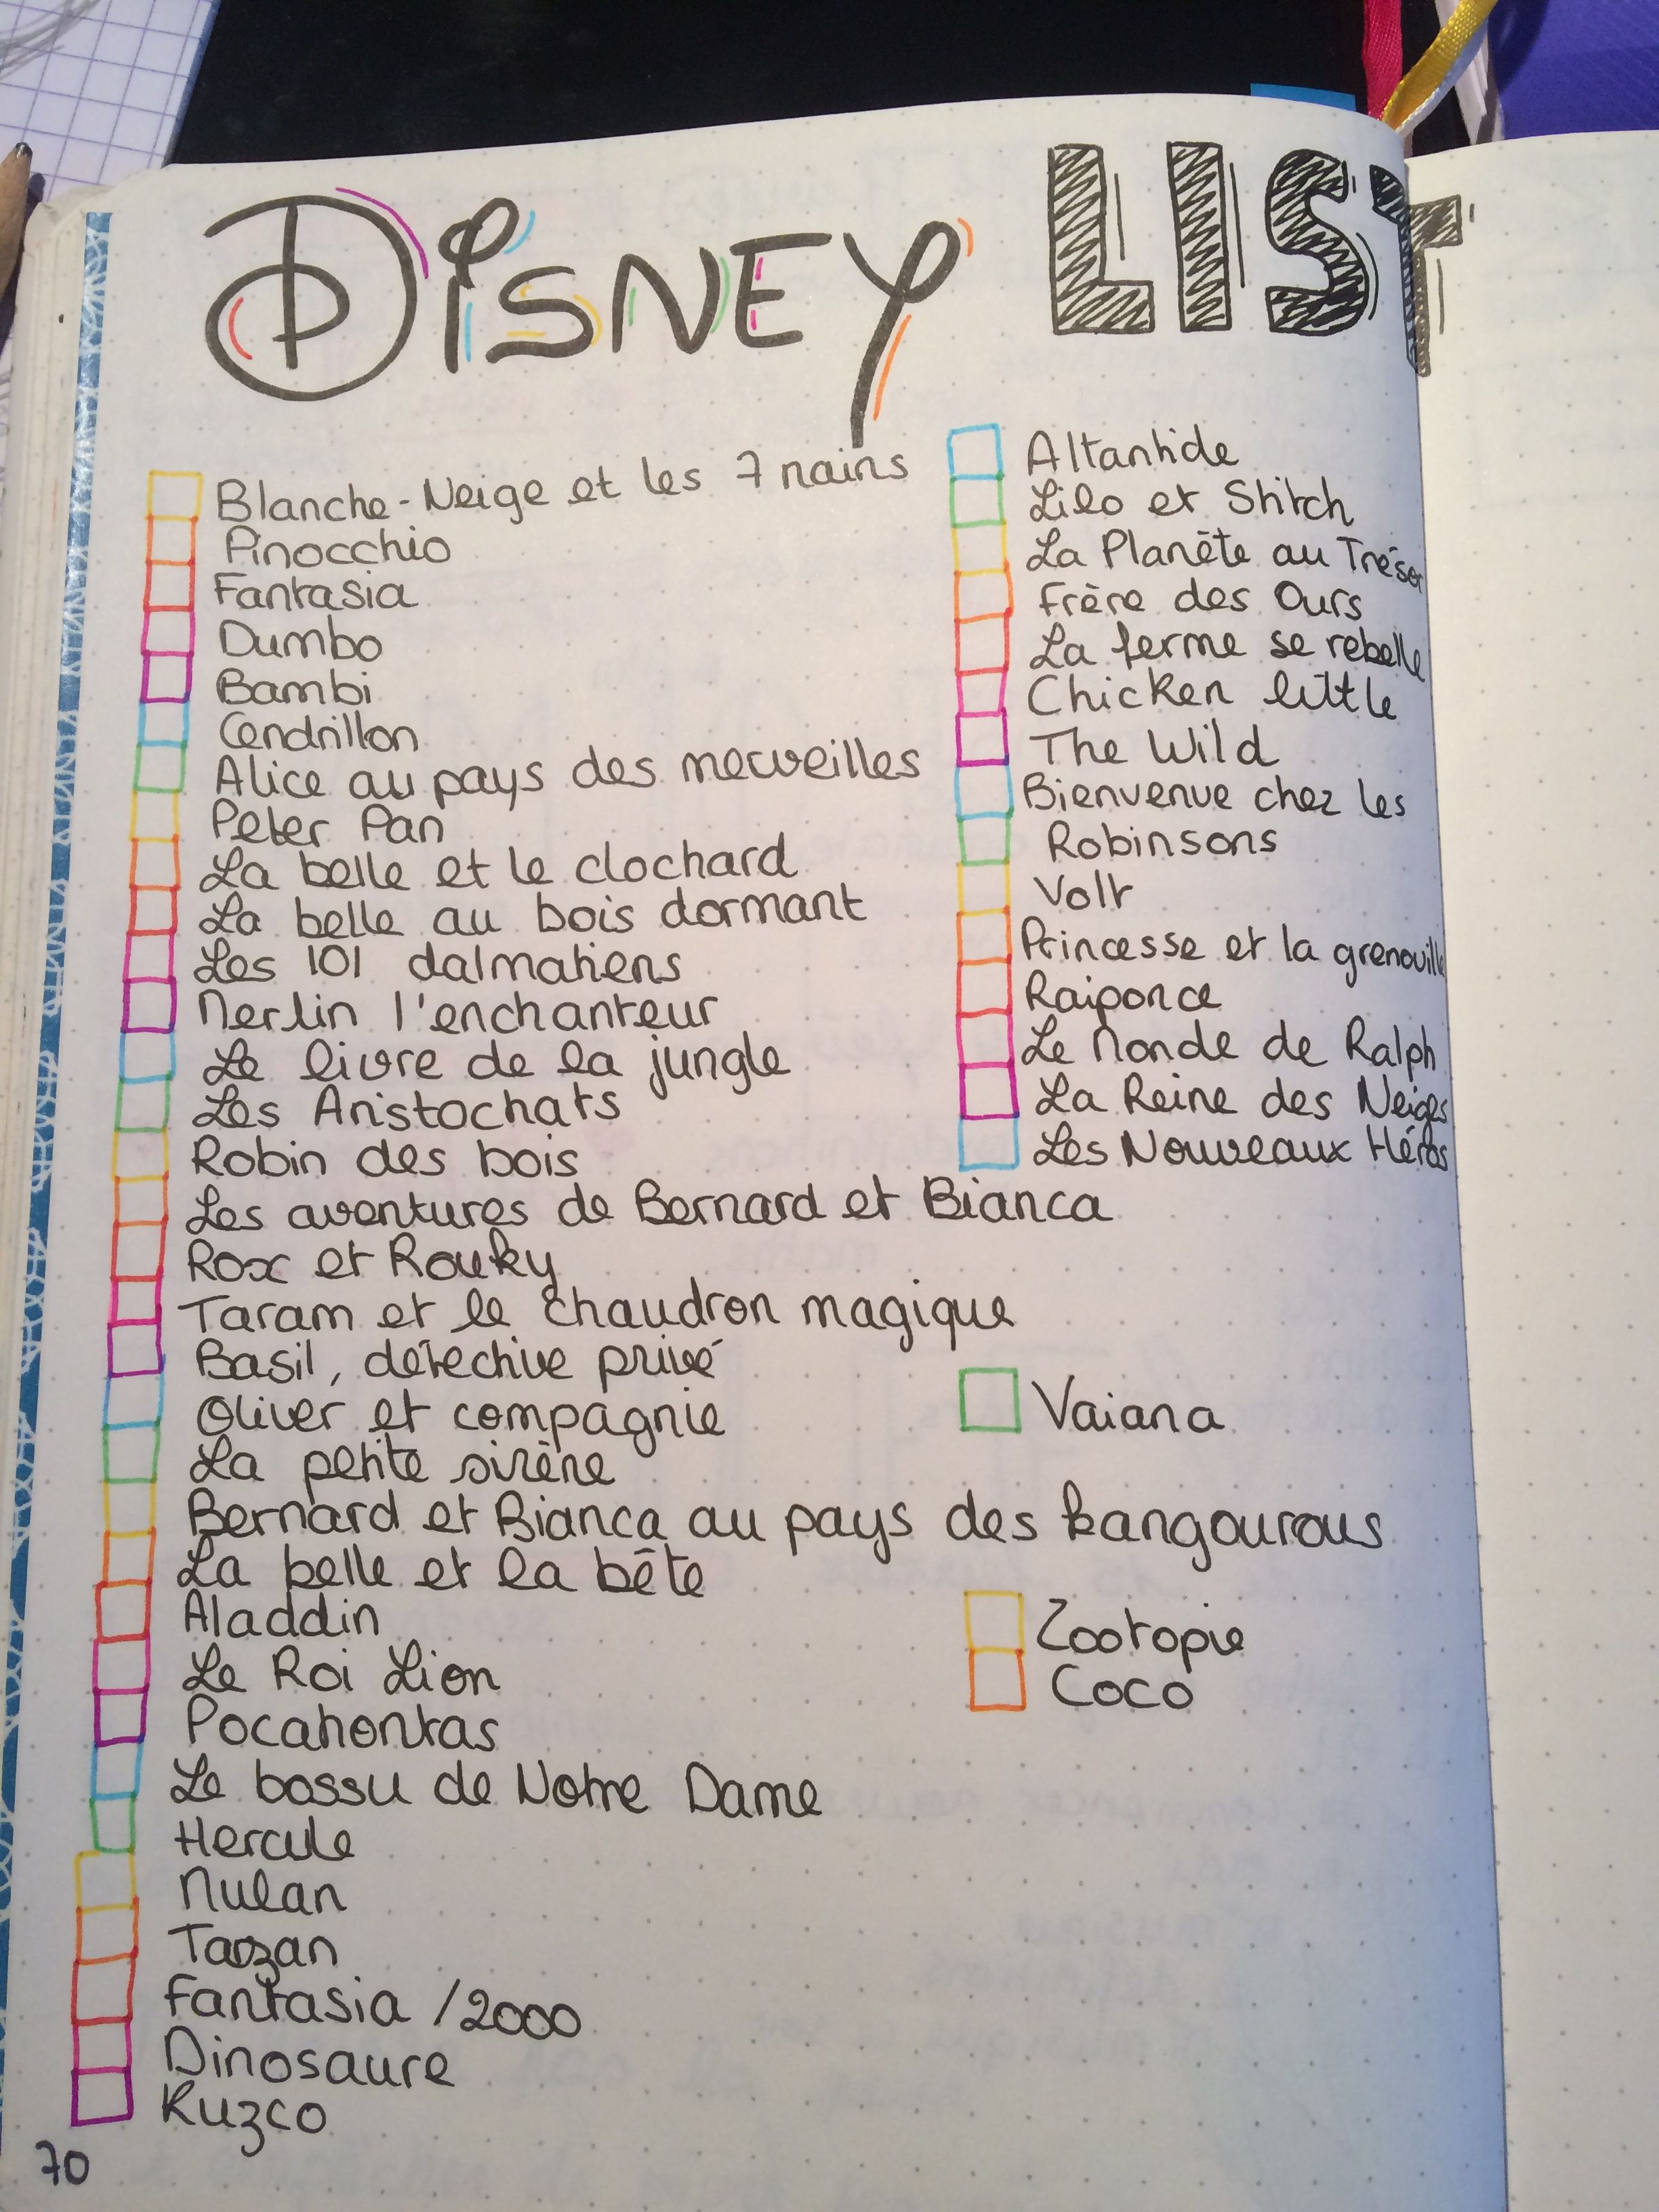 DiSNEY LIST
Blanche-Neige et les 7 nains
Pinocchio
Fantasia
Dumbo
Bambi
Cendrillon
Alice au pays des merveilles
Peter Pan
La belle et le clochard
La belle au bois dormant
Les 101 dalmatiens
Merlin l'enchanteur
Le livre de la jungle
Les Aristochats
Robin des bois
Les aventures de Bernard et Bianca
Rox et Rouky
Taram et le chaudron magique
Basil, détective privé
Oliver et compagnie
La petite sirène
Bernard et Bianca au pays des kangourous
La belle et la bête
Aladdin
Le Roi Lion
Pocahontas
Le bossu de Notre Dame
Hercule
Mulan
Tarzan
Fantasia /2000
Dinosaure
Kuzco
Altantide
Lilo et Stitch
La Planète au Trésor
Frère des Ours
La ferme se rebelle
Chicken little
The Wild
Bienvenue chez les
Robinsons
Volt
Princesse et la grenouille
Raiponce
Le Monde de Ralph
La Reine des Neiges
Les Nouveaux Héros
Vaiana
Zootopie
Coco
70